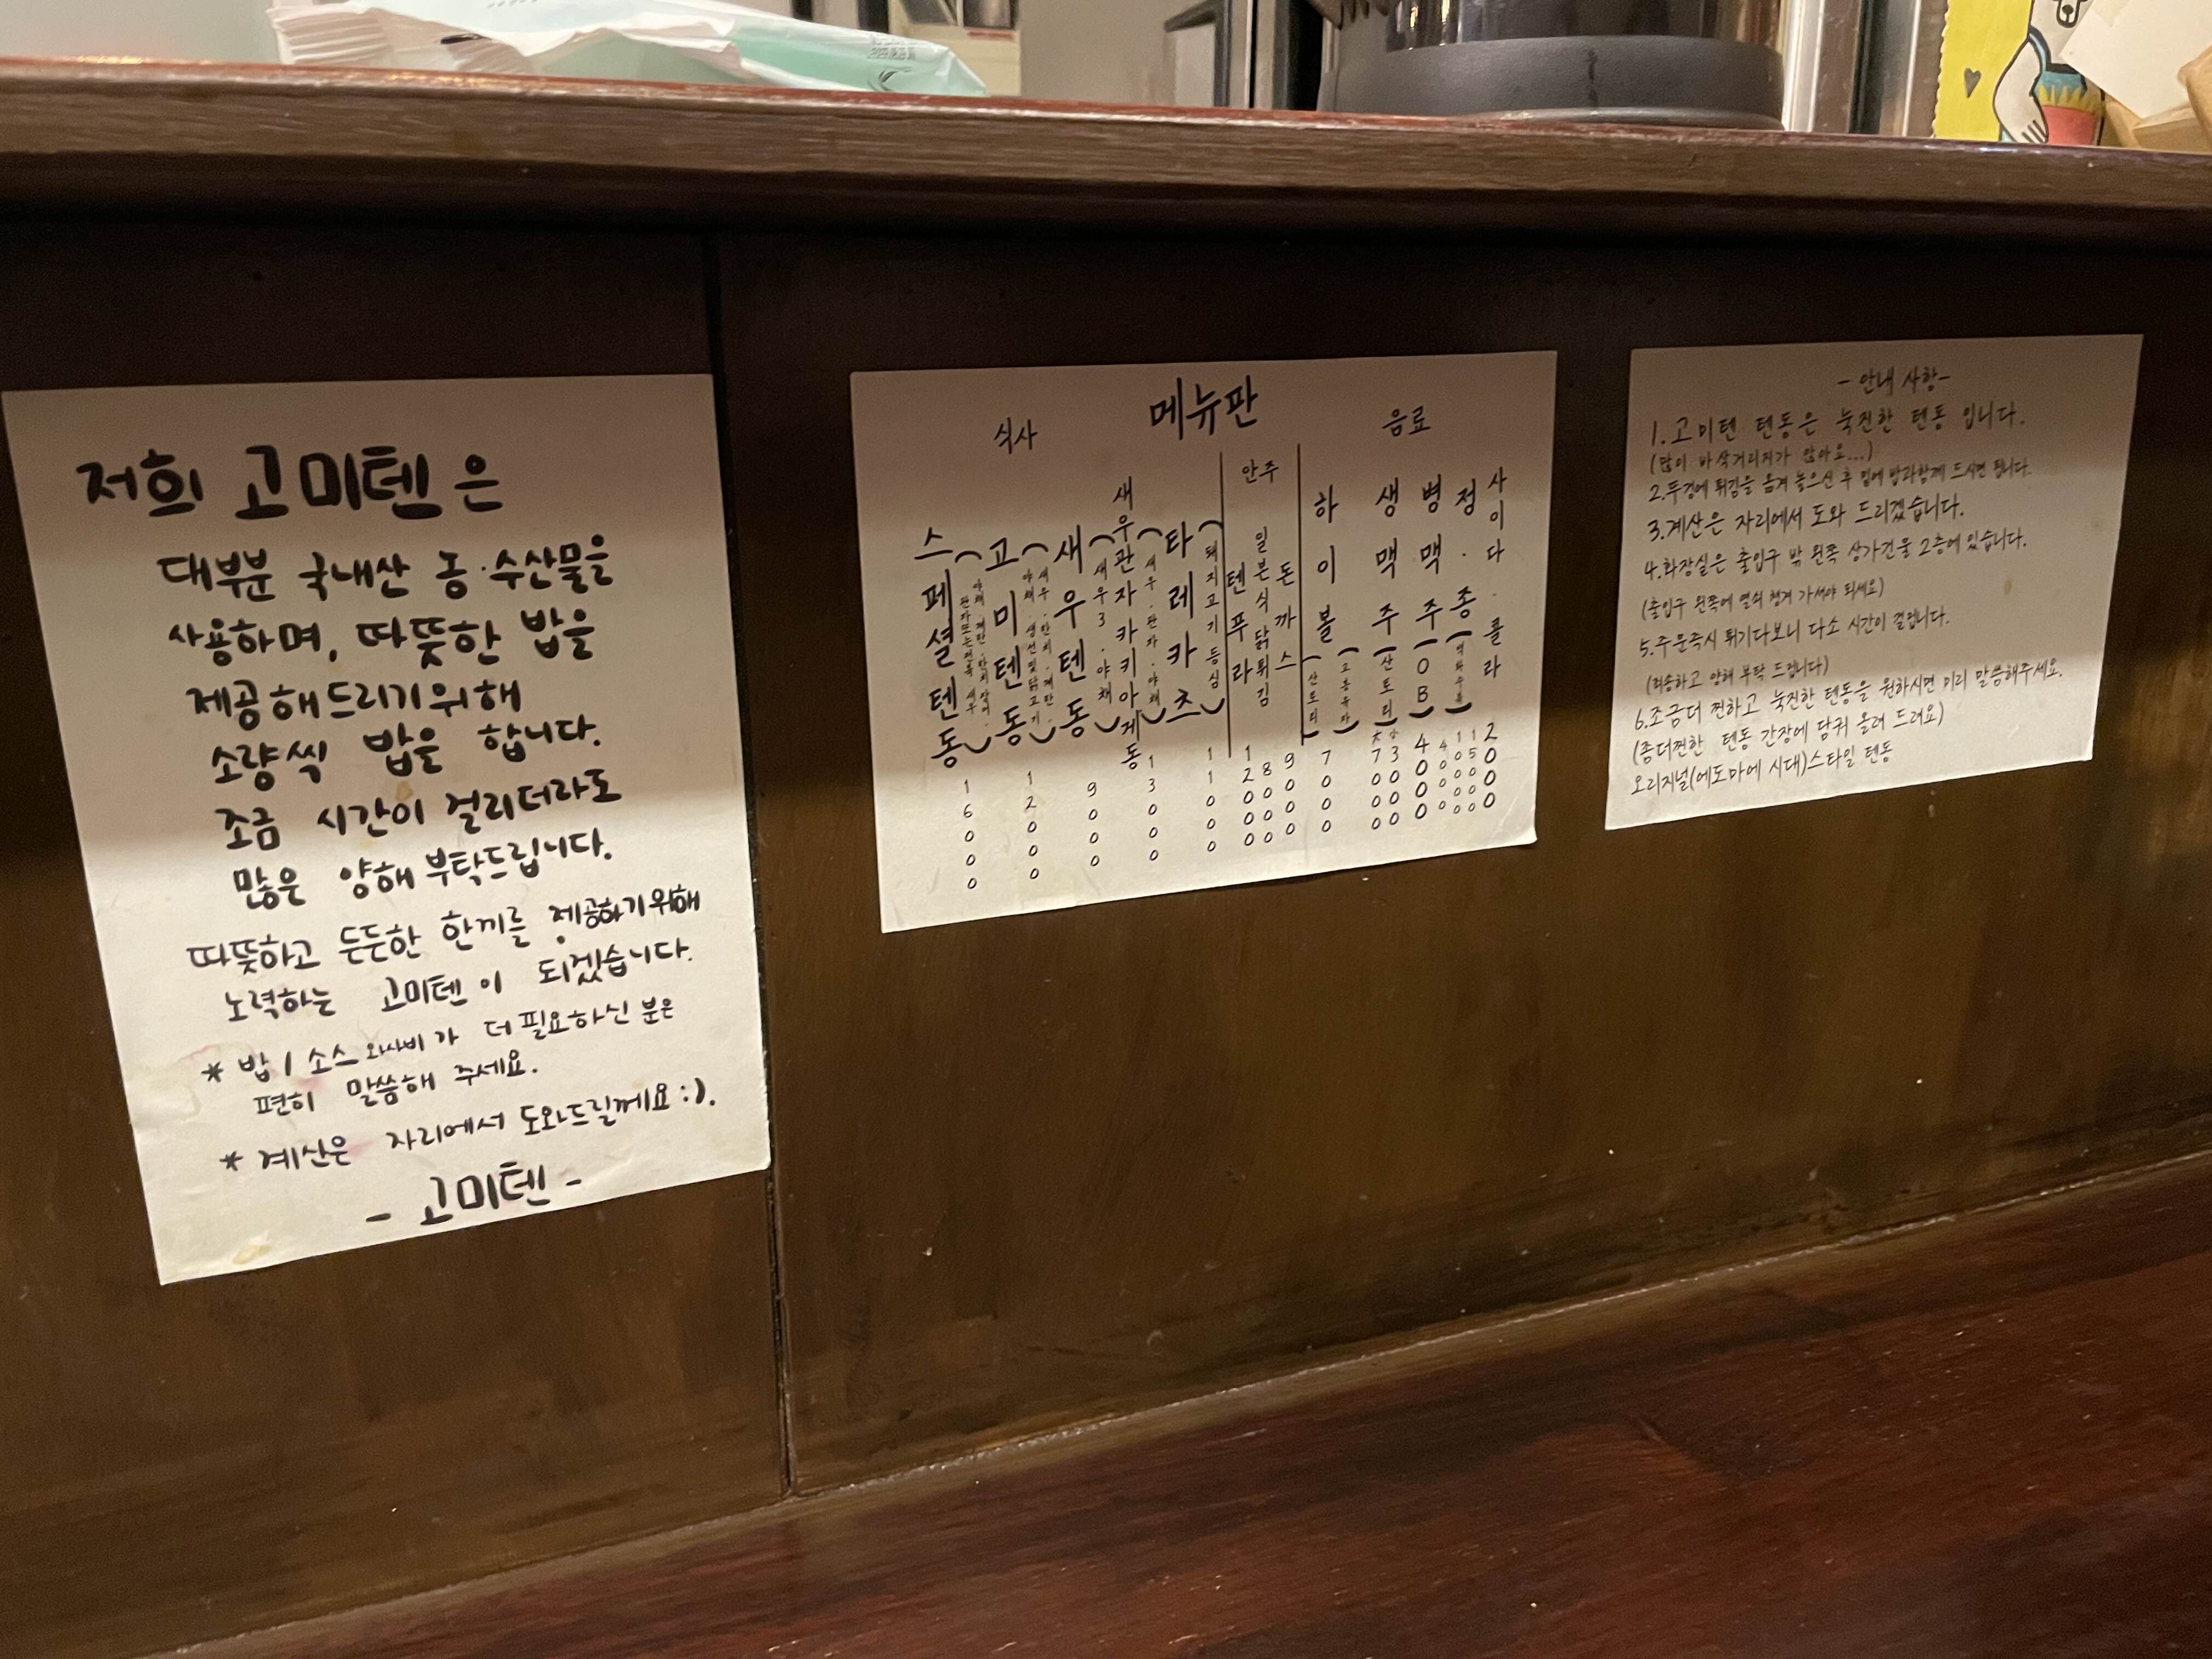 저희 고미텐은
대부분 국내산 농·수산물을
사용하며, 따뜻한 밥을
제공해드리기위해
소량씩 밥을 합니다.
조금 시간이 걸리더라도
많은 양해 부탁드립니다.
따뜻하고 든든한 한끼를 제공하기위해
노력하는 고미텐이 되겠습니다.
* 밥 / 소스 와사비가 더 필요하신 분은
편히 말씀해 주세요.
* 계산은 자리에서 도와드릴께요 :).
- 고미텐 -
메뉴판
식사
스페셜텐동
16000
고미텐동
12000
새우텐동
(새우3.야채)
9000
새우관자카키아게동
(새우.관자.야채)
13000
타레카츠
(돼지고기등심)
11000
안주
텐푸라
12000
일본식닭튀김
8000
돈까스
9000
음료
하이볼
(산토리)
7000
생맥주
(산토리)
大7000
小3000
병맥주
(OB)
4000
정종
사이다.콜라
2000
- 안내 사항-
1.고미텐 텐동은 눅진한 텐동 입니다.
(많이 바삭거리지가 않아요...)
2.뚜껑에 튀김을 옮겨 놓으신 후 밑에 밥과함께 드시면 됩니다.
3.계산은 자리에서 도와 드리겠습니다.
4.화장실은 출입구 밖 왼쪽 상가건물 2층에 있습니다.
(출입구 왼쪽에 열쇠 챙겨 가셔야 되세요)
5.주문즉시 튀기다보니 다소 시간이 걸립니다.
(죄송하고 양해 부탁 드립니다)
6.조금더 찐하고 눅진한 텐동을 원하시면 미리 말씀해주세요.
(좀더찐한 텐동 간장에 담궈 올려 드려요)
오리지널(에도마에 시대)스타일 텐동